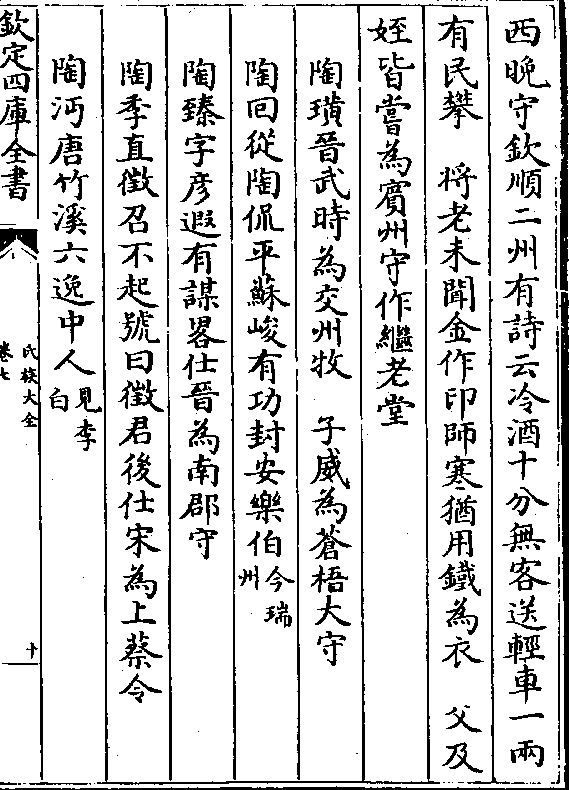 西晚守欽順二州有詩云冷酒十分無客送輕車一兩
有民攀　將老未聞金作印師寒猶用鐵為衣　父及
姪皆嘗為賓州守作繼老堂
陶璜晉武時為交州牧　子威為蒼梧大守
陶回從陶侃平蘇峻有功封安樂伯今瑞州
陶臻字彦遐有謀畧仕晉為南郡守
陶季直徵召不起號曰徵君後仕宋為上蔡令
陶沔唐竹溪六逸中人見李白
欽定四庫全書
氏族大全
卷七
十